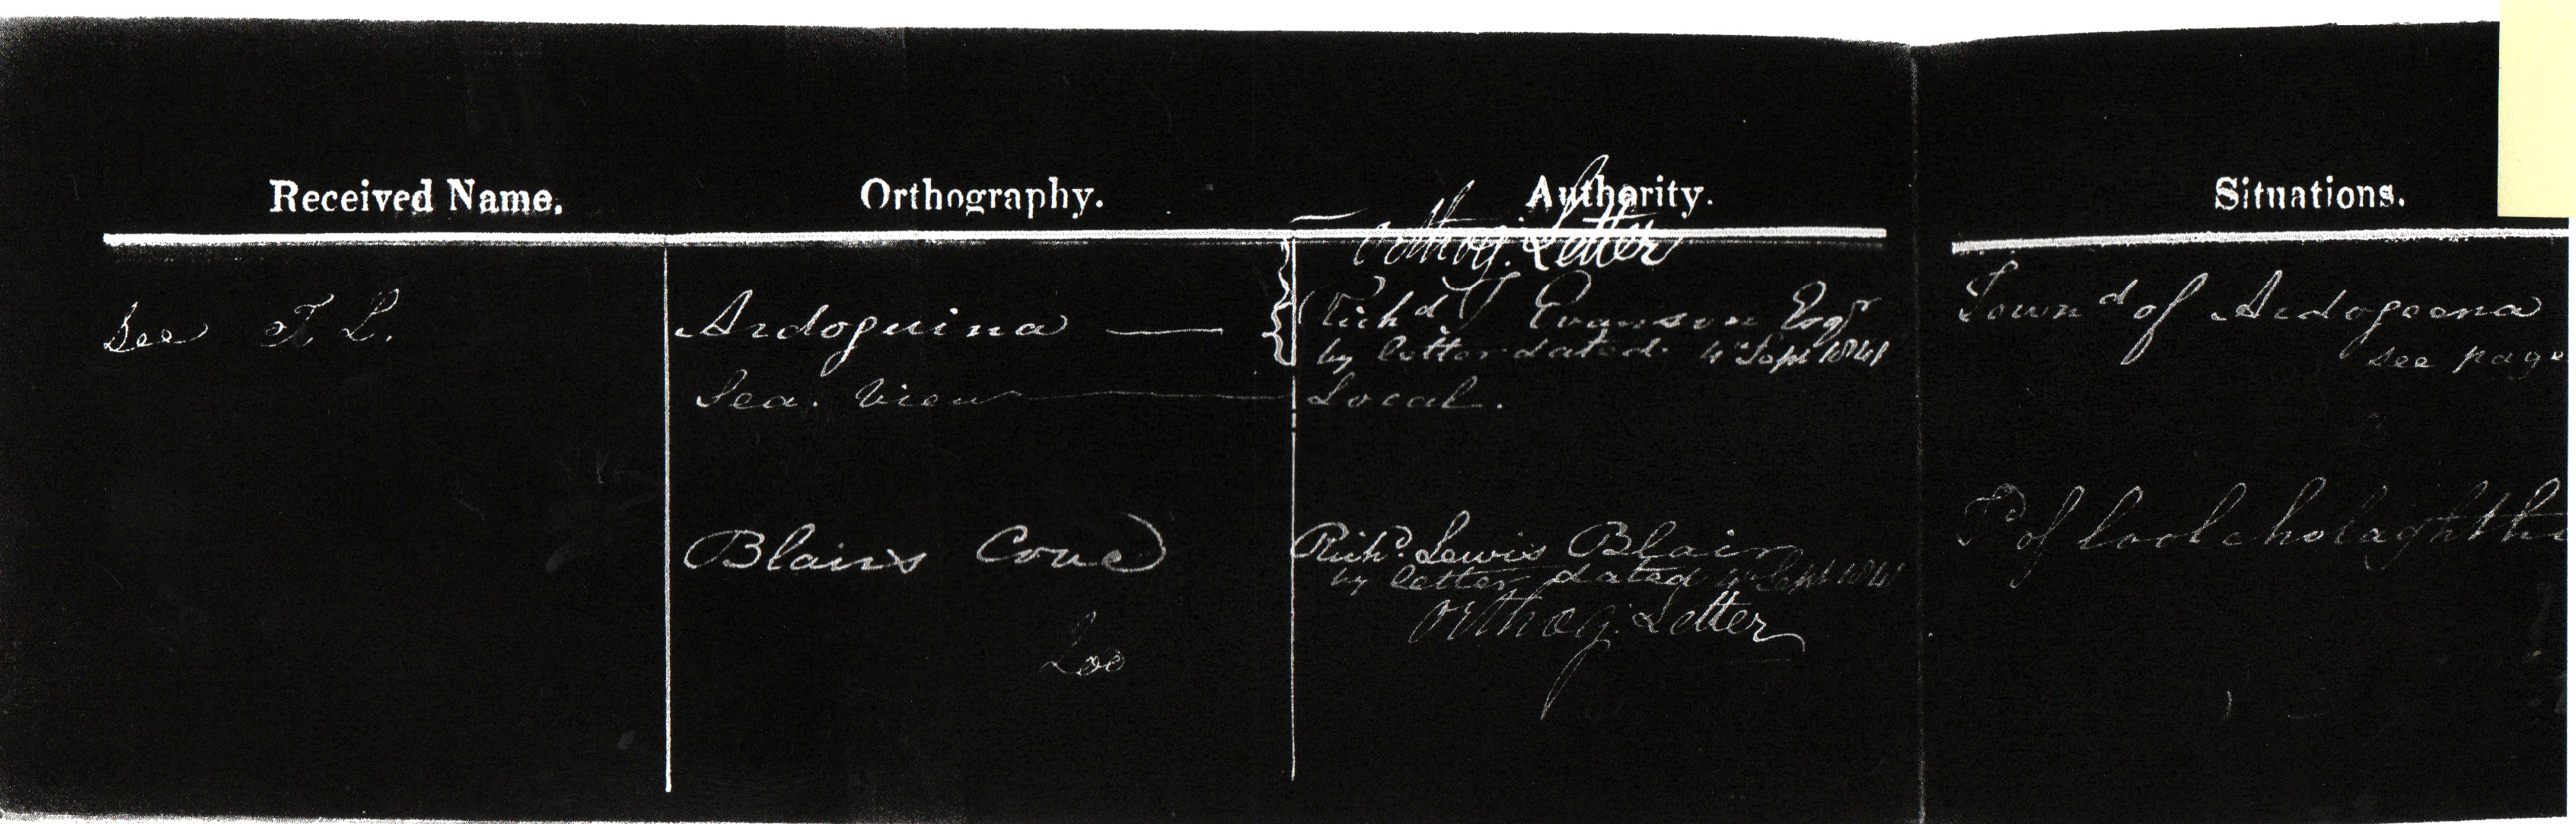 Received Name. Orthography. Authority. Situations.
Orthog. Letter
See T. L. Ardoguina — Richd T Evanson Esqr Townd of Ardogeena
by letter dated 4 Sept 1841 see page
Sea. View — Local.
Blairs Cove Richd. Lewis Blair Td of
by letter dated 4 Sept 1841
Orthog. Letter